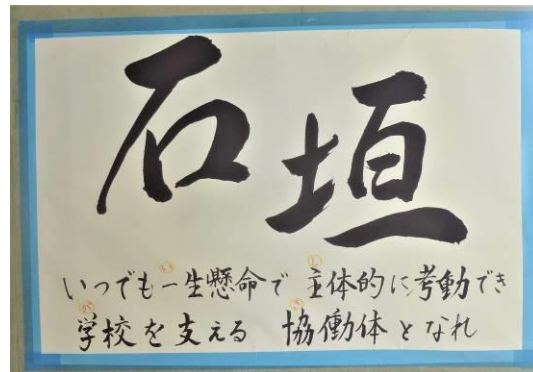 石垣
いつでも一生懸命で 主体的に考動でき
学校を支える 協働体となれ